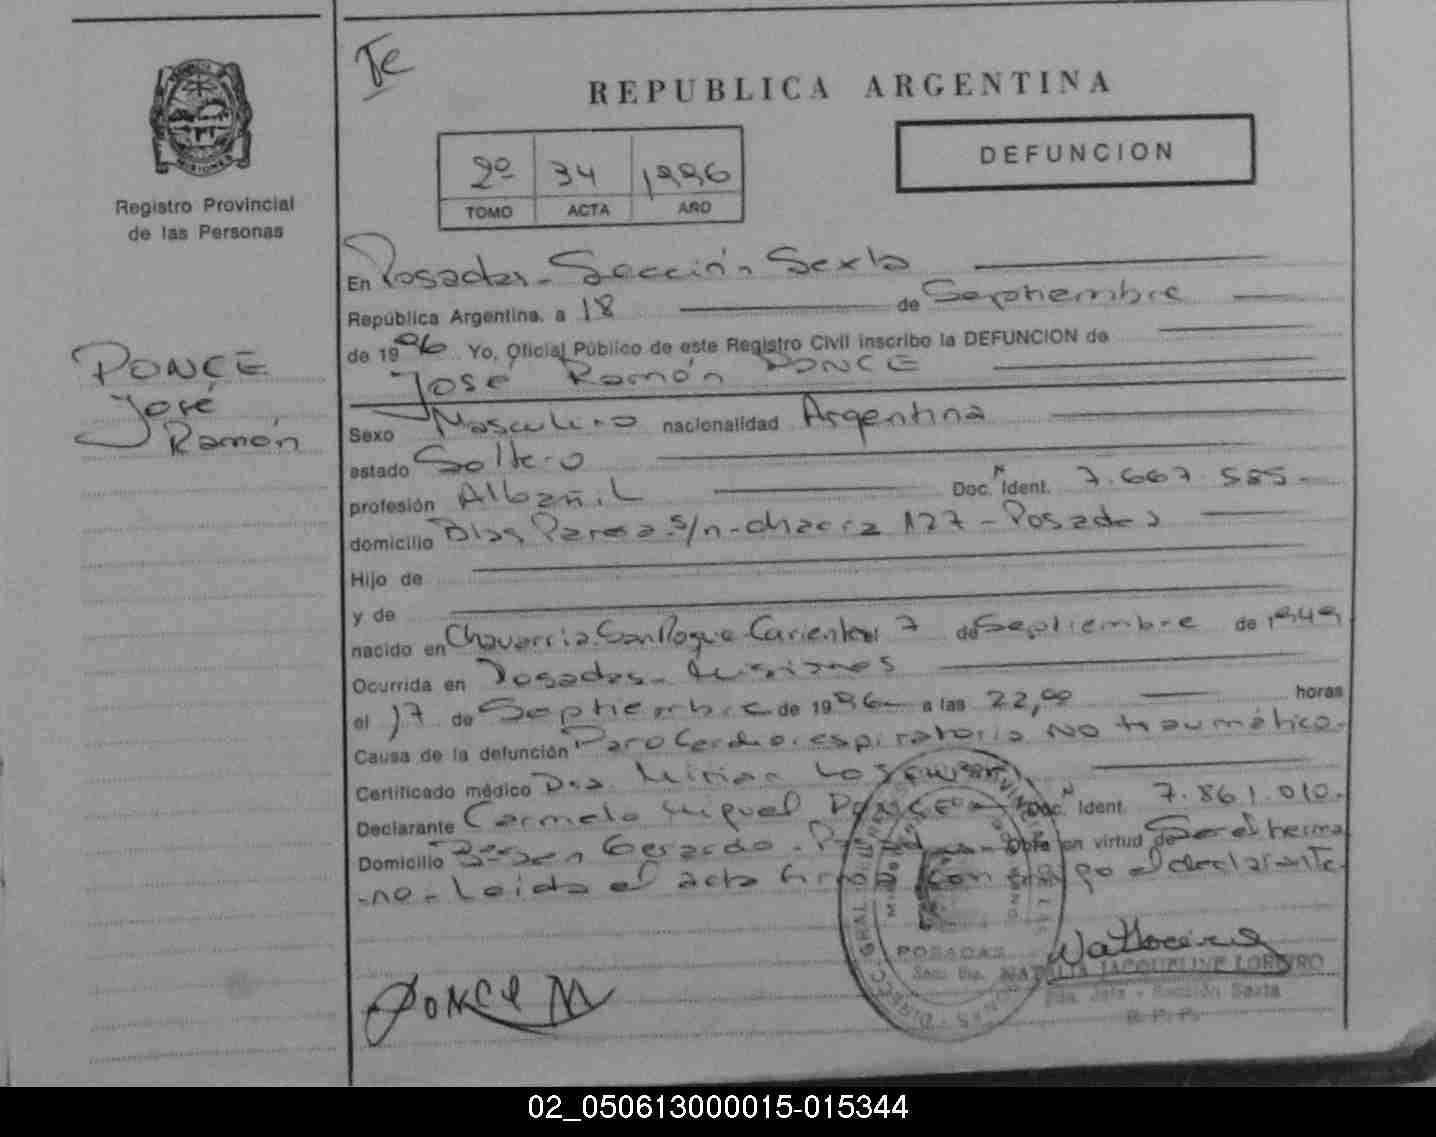 Te
REPUBLICA ARGENTINA
DEFUNCION
2º 34 1996
TOMO ACTA AÑO
Registro Provincial
de las Personas
MISIONES
PONCE
José
Ramón
En Posadas - Sección Sexta
República Argentina, a 18 de Septiembre
de 1996 Yo, Oficial Público de este Registro Civil inscribo la DEFUNCION de
José Ramón PONCE
Sexo Masculino nacionalidad Argentina
estado Soltero
profesión Albañil Doc. N Ident. 7.667.585.-
domicilio Blas Parera s/n - chacra 127 - Posadas
Hijo de
y de
nacido en Chavarria. San Roque. Corrientes el 7 de Septiembre de 1949
Ocurrida en Posadas - Misiones
el 17 de Septiembre de 1996 a las 22,00 horas
Causa de la defunción Paro Cardiorespiratorio No traumático.
Certificado médico Dra. Mirian
Declarante Carmelo Miguel PONCE Doc. N Ident. 7.861.010.
Domicilio Gerardo - Obra en virtud de Ser el herma
-no - Leida el acta firma conmigo el declarante.
PONCE M
POSADAS
NATALIA JACQUELINE LOREIRO
Jefa - Sección Sexta
R. P. P.
02_050613000015-015344